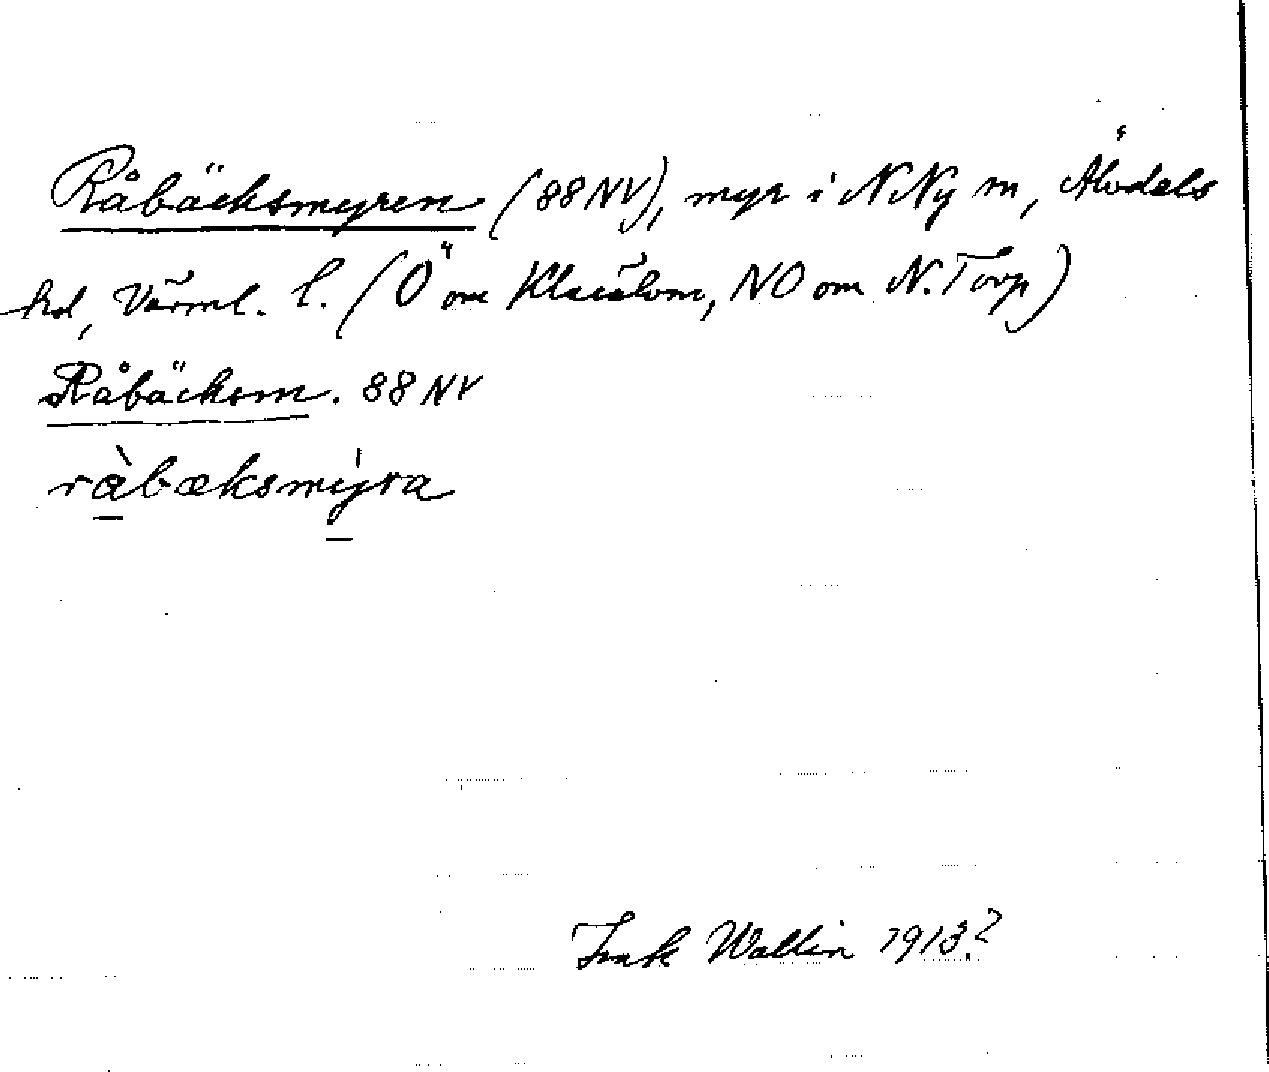 Råbäcksmyren (88 NV), myr i N Ny sn, Älvdals
hd, Värml. l. (Ö om Klarälven, NO om N. Torp)
Råbäcksm. 88 NV
ràbæksmýra
Wallin 1913?